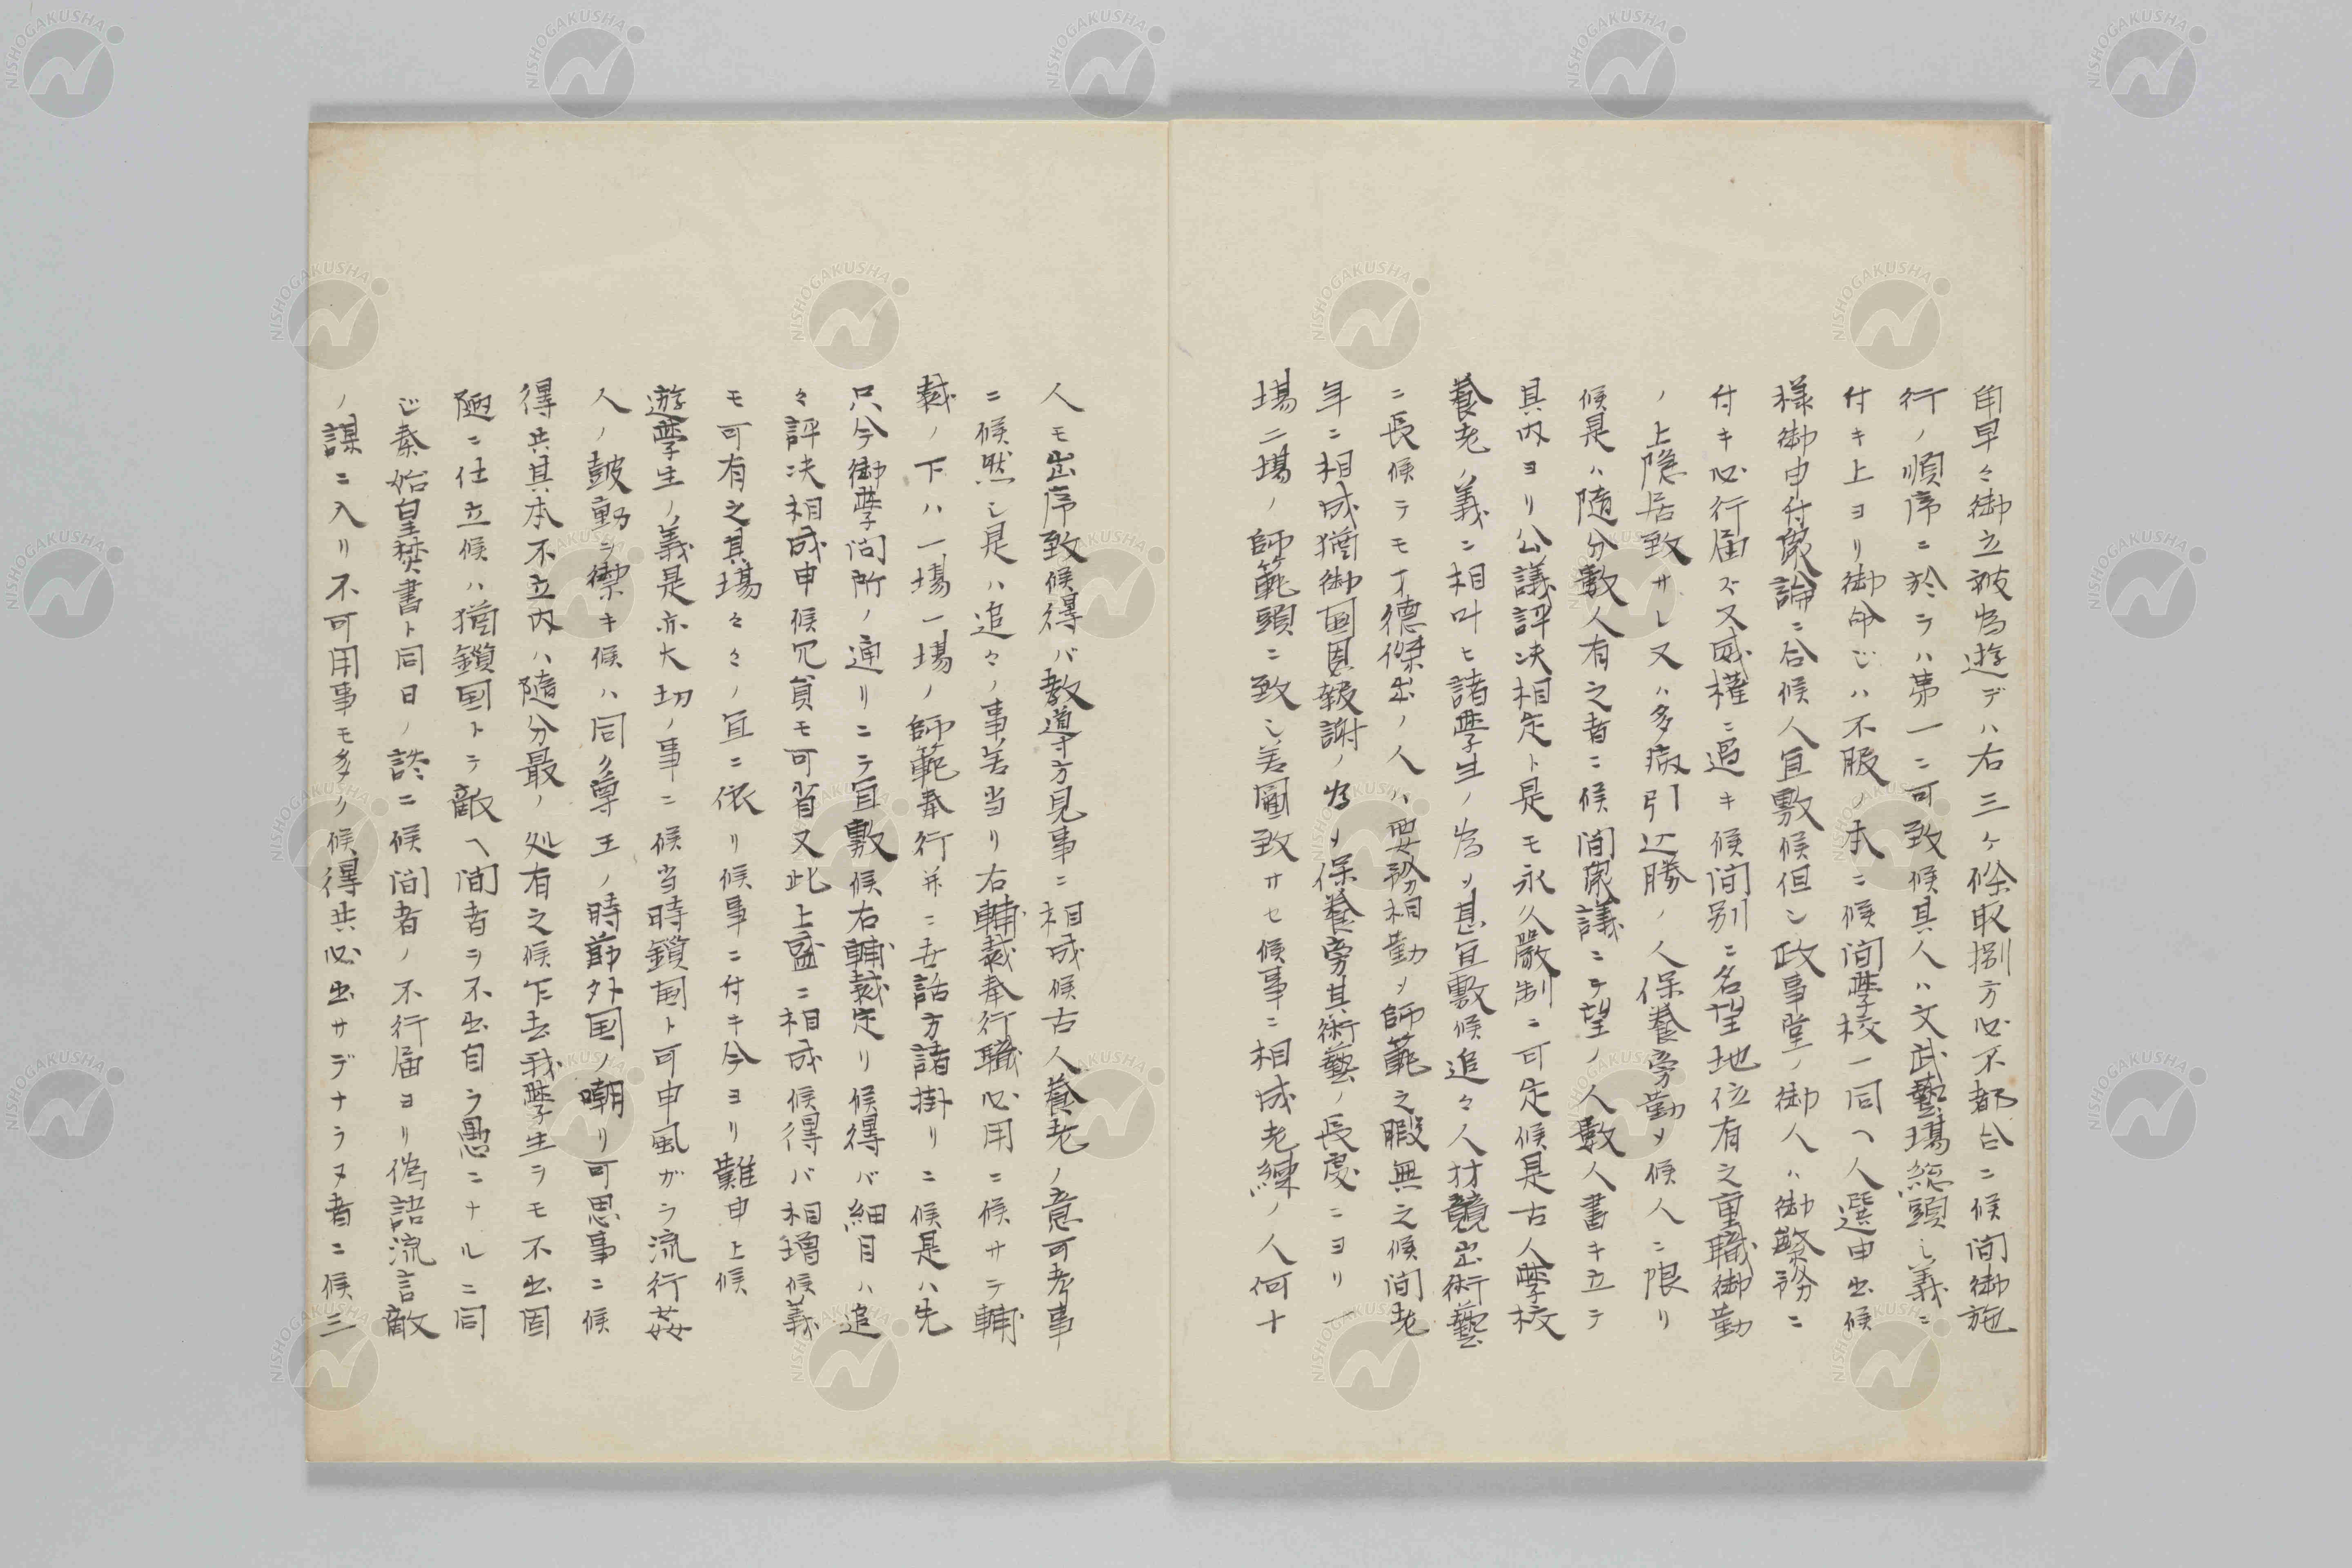 角早々御立被為遊デハ右三ケ條取捌方必不都合ニ候間御施
行ノ順序ニ於テハ第一ニ可致候其人ハ文武藝場総頭之義ニ
付キ上ヨリ御命ジハ不服ノ本ニ候間學校一同ヘ人選申出候
様御申付衆論ニ合候人宜敷候但シ政事堂ノ御人ハ御繁務ニ
付キ必行届ズ又威權ニ過キ候間別ニ名望地位有之重職御勤
ノ上隠居致サレ又ハ多病引込勝ノ人保養旁勤メ候人ニ限リ
候是ハ随分數人有之者ニ候間衆議ニテ望ノ人數人書キ立テ
其内ヨリ公議評决相定ト是モ永久嚴制ニ可定候是古人學校
養老ノ義ニ相叶ヒ諸學生ノ為メ甚宜敷候追々人材競出術藝
ニ長候テモ才德傑出ノ人ハ要務相勤メ師範之暇無之候間老
年ニ相成猶御国恩報謝ノ為メ保養旁其術藝ノ長處ニヨリ一
場二場ノ師範頭ニ致シ差圖致サセ候事ニ相成老練ノ人何十
人モ出席致候得バ教導方見事ニ相成候古人養老ノ意可考事
ニ候然シ是ハ追々ノ事差当リ右輔裁奉行職必用ニ候サテ輔
裁ノ下ハ一場一場ノ師範奉行并ニ世話方諸掛リニ候是ハ先
只今御學問所ノ通リニテ宜敷候右輔裁定リ候得バ細目ハ追
々評决相成申候冗貟モ可省又此上盛ニ相成候得バ相増候義
モ可有之其場々々ノ宜ニ依リ候事ニ付キ今ヨリ難申上候
遊學生ノ義是亦大切ノ事ニ候当時鎖国ト可申風ガラ流行姦
人ノ鼓動ヲ禦キ候ハ同ク尊王ノ時節外国ノ嘲リ可思事ニ候
得共其本不立内ハ随分最ノ処有之候乍去我學生ヲモ不出固
陋ニ仕立候ハ猶鎖国トテ敵ヘ間者ヲ不出自ラ愚ニナルニ同
じ秦始皇焚書ト同日ノ談ニ候間者ノ不行届ヨリ偽語流言敵
ノ謀ニ入リ不可用事モ多ク候得共必出サデナラヌ者ニ候三